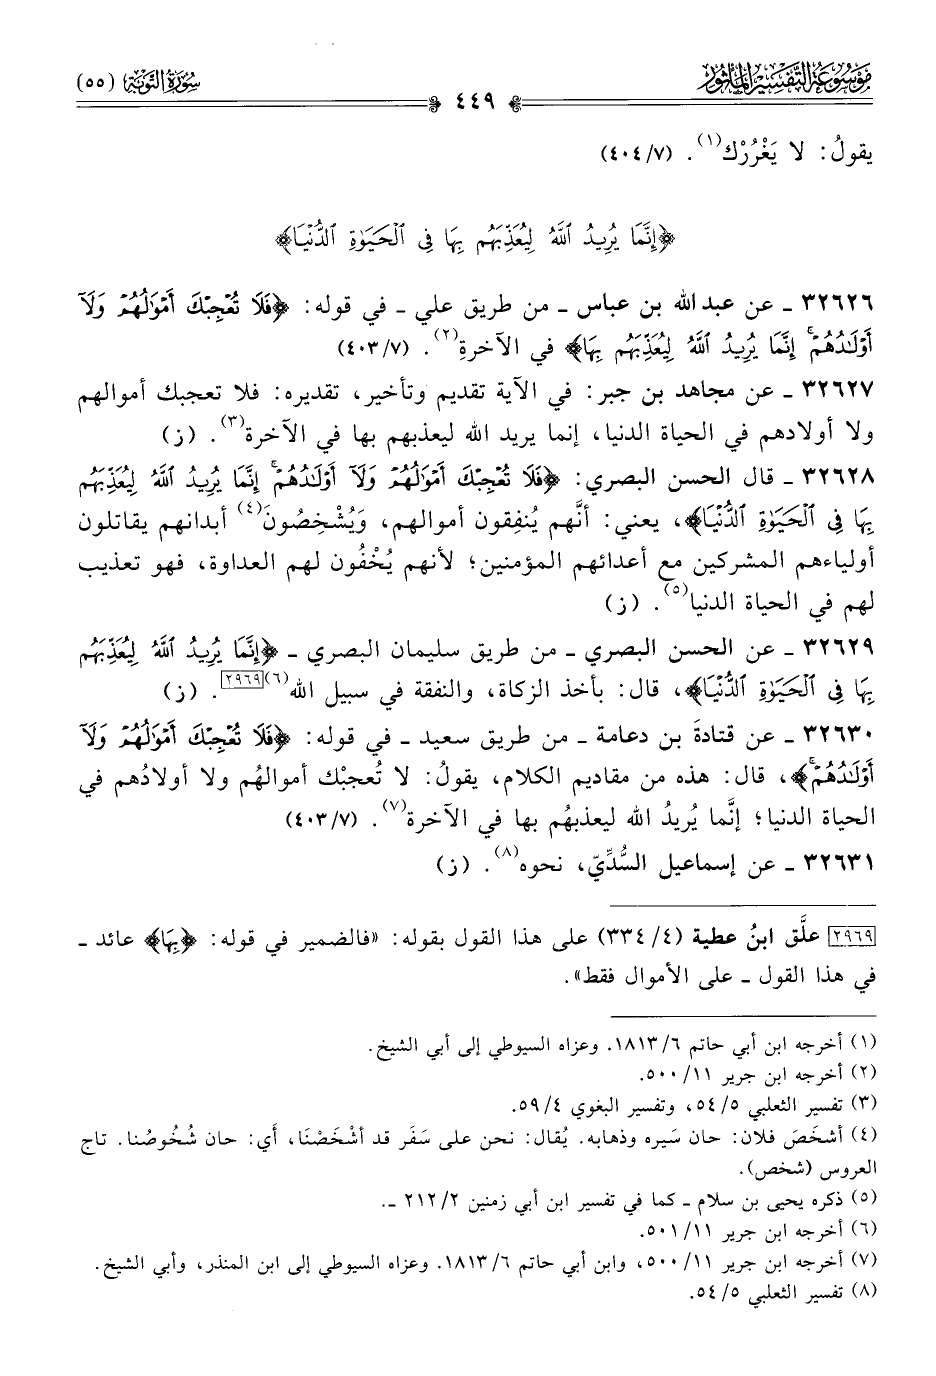 مَوْسُوعَة التَّفْسِيْر المَأْثُور
٤٤٩
سُورَةُ التَّوْبَة (٥٥)
يقولُ: لا يَغْرُرْك(١). (٤٠٤/٧)
﴿إِنَّمَا يُرِيدُ ٱللَّهُ لِيُعَذِّبَهُم بِهَا فِي ٱلْحَيَوٰةِ ٱلدُّنْيَا﴾
٣٢٦٢٦ ـ عن عبد الله بن عباس ـ من طريق علي ـ في قوله: ﴿فَلَا تُعْجِبْكَ أَمْوَٰلُهُمْ وَلَآ
أَوْلَـٰدُهُمْۚ إِنَّمَا يُرِيدُ ٱللَّهُ لِيُعَذِّبَهُم بِهَا﴾ في الآخرةِ(٢). (٤٠٣/٧)
٣٢٦٢٧ ـ عن مجاهد بن جبر: في الآية تقديم وتأخير، تقديره: فلا تعجبك أموالهم
ولا أولادهم في الحياة الدنيا، إنما يريد الله ليعذبهم بها في الآخرة(٣). (ز)
٣٢٦٢٨ ـ قال الحسن البصري: ﴿فَلَا تُعْجِبْكَ أَمْوَٰلُهُمْ وَلَآ أَوْلَـٰدُهُمْۚ إِنَّمَا يُرِيدُ ٱللَّهُ لِيُعَذِّبَهُم
بِهَا فِي ٱلْحَيَوٰةِ ٱلدُّنْيَا﴾، يعني: أنَّهم يُنفِقون أموالهم، وَيُشْخِصُونَ(٤) أبدانهم يقاتلون
أولياءهم المشركين مع أعدائهم المؤمنين؛ لأنهم يُخْفُون لهم العداوة، فهو تعذيب
لهم في الحياة الدنيا(٥). (ز)
٣٢٦٢٩ ـ عن الحسن البصري ـ من طريق سليمان البصري ـ ﴿إِنَّمَا يُرِيدُ ٱللَّهُ لِيُعَذِّبَهُم
بِهَا فِي ٱلْحَيَوٰةِ ٱلدُّنْيَا﴾، قال: بأخذ الزكاة، والنفقة في سبيل الله(٦)[٢٩٦٩]. (ز)
٣٢٦٣٠ ـ عن قتادةَ بن دعامة ـ من طريق سعيد ـ في قوله: ﴿فَلَا تُعْجِبْكَ أَمْوَٰلُهُمْ وَلَآ
أَوْلَـٰدُهُمْۚ﴾، قال: هذه من مقاديم الكلام، يقولُ: لا تُعجبْك أموالهُم ولا أولادُهم في
الحياة الدنيا؛ إنَّما يُريدُ الله ليعذبهُم بها في الآخرة(٧). (٤٠٣/٧)
٣٢٦٣١ ـ عن إسماعيل السُّدِّيّ، نحوه(٨). (ز)
[٢٩٦٩] علَّق ابنُ عطية (٣٣٤/٤) على هذا القول بقوله: «فالضمير في قوله: ﴿بِهَا﴾ عائد ـ
في هذا القول ـ على الأموال فقط».
(١) أخرجه ابن أبي حاتم ٦/ ١٨١٣. وعزاه السيوطي إلى أبي الشيخ.
(٢) أخرجه ابن جرير ١١/ ٥٠٠.
(٣) تفسير الثعلبي ٥/ ٥٤، وتفسير البغوي ٤/ ٥٩.
(٤) أشخَصَ فلان: حان سَيره وذهابه. يُقال: نحن على سَفَر قد أشْخَصْنَا، أي: حان شُخُوصُنا. تاج
العروس (شخص).
(٥) ذكره يحيى بن سلام ـ كما في تفسير ابن أبي زمنين ٢/ ٢١٢ ـ.
(٦) أخرجه ابن جرير ١١/ ٥٠١.
(٧) أخرجه ابن جرير ١١/ ٥٠٠، وابن أبي حاتم ٦/ ١٨١٣. وعزاه السيوطي إلى ابن المنذر، وأبي الشيخ.
(٨) تفسير الثعلبي ٥/ ٥٤.